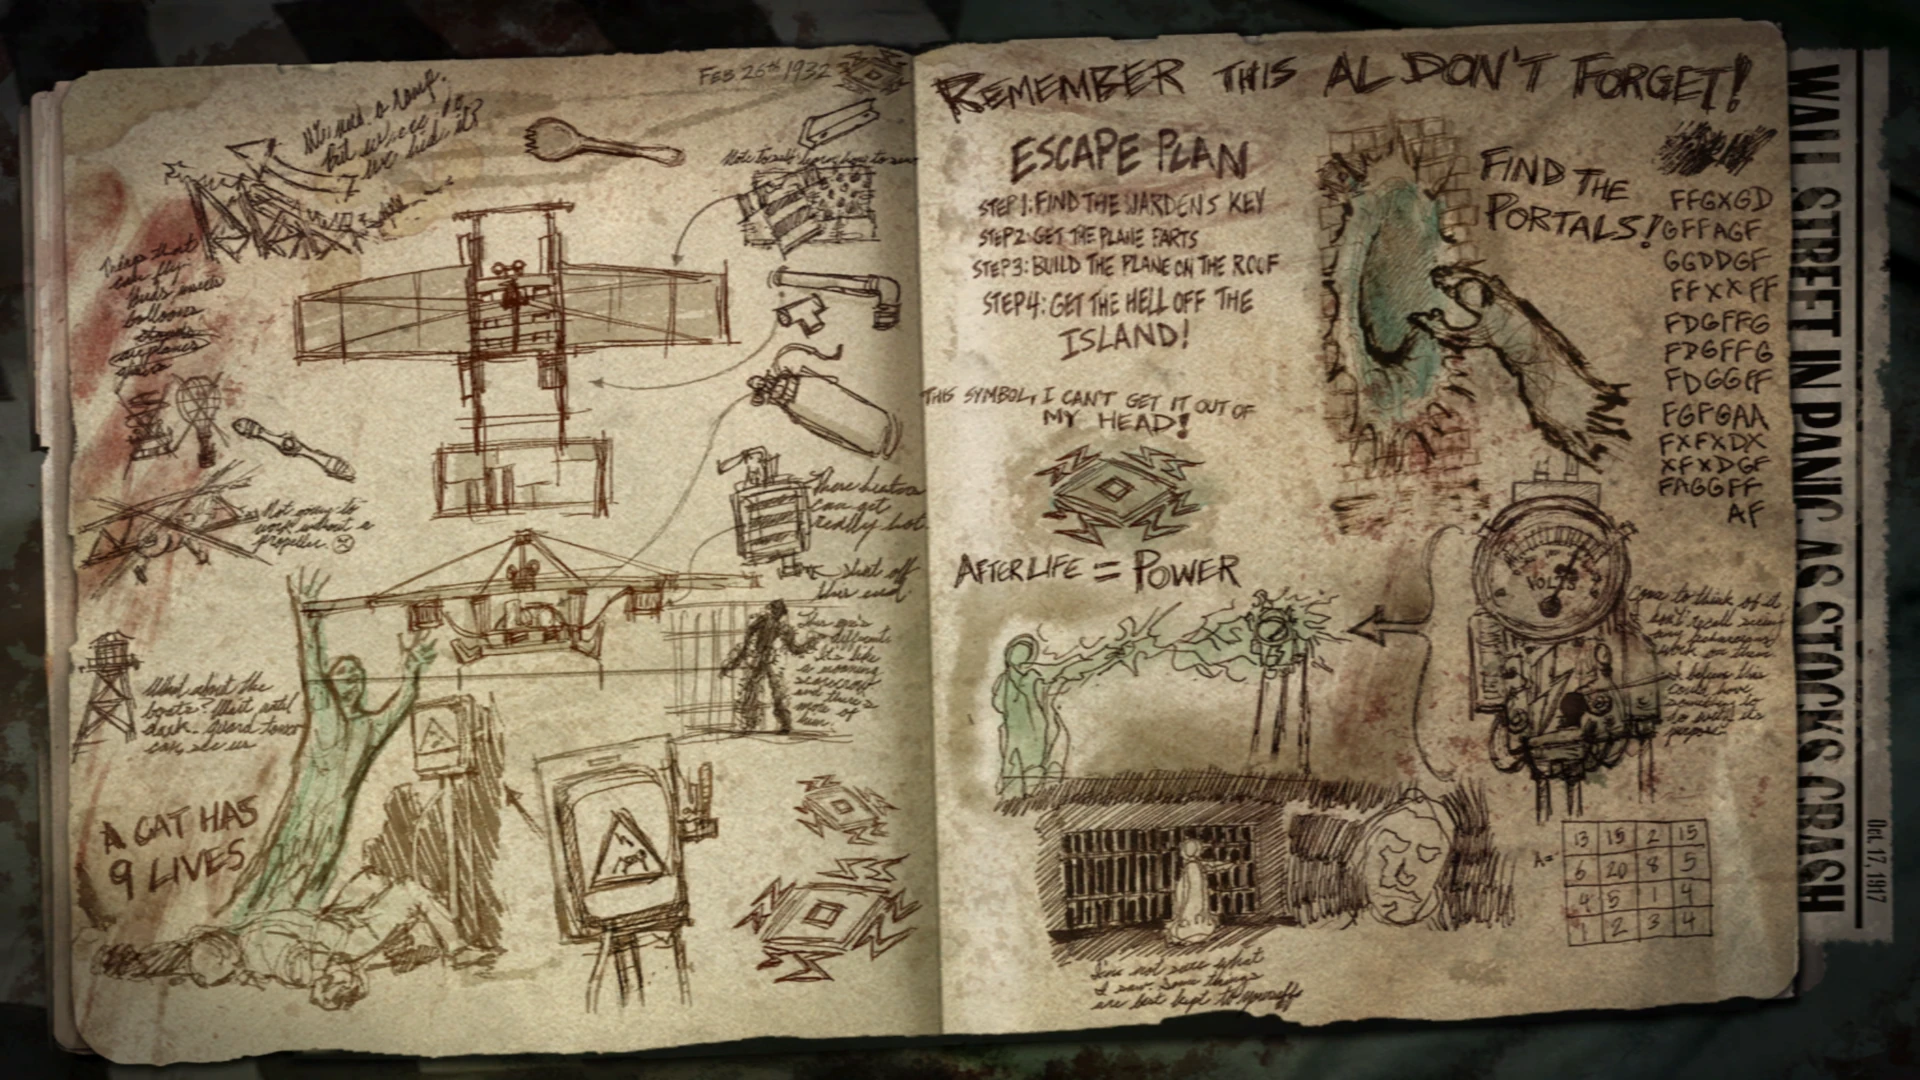 FEB 26th 1932
We need a ramp,
but where do
we hid it?
Note to self learn how to sew
Things that
can fly:
Birds insects
balloons
airplanes
Not going to
work without a
propeller.
These heaters
can get
really hot.
Shut off
This one's
different.
It's like
a morning
scarecrow
and there's
more of
him.
What about the
boats? Wait until
dark. Guard tower
can see us
A CAT HAS
9 LIVES
REMEMBER THIS AL DON'T FORGET!
ESCAPE PLAN
STEP 1: FIND THE WARDENS KEY
STEP 2: GET THE PLANE PARTS
STEP 3: BUILD THE PLANE ON THE ROOF
STEP 4: GET THE HELL OFF THE
ISLAND!
THIS SYMBOL, I CAN'T GET IT OUT OF
MY HEAD!
AFTERLIFE = POWER
FIND THE
PORTALS!
FFGXGD
GFFAGF
GGDDGF
FFXXFF
FDGFFG
FDGFFG
FDGGFF
FGFGAA
FXFXDX
XFXDGF
FAGGFF
AF
VOLTS
Come to think of it
I don't recall seeing
any
work on them.
I believe this
could have
something to
do with its
purpose.
A =
13 15 2 15
6 20 8 5
4 5 1 4
1 2 3 4
I'm not sure what
I saw. Some things
are best kept to yourself
WALL STREET IN PANIC AS STOCKS CRASH
Oct. 17, 1917